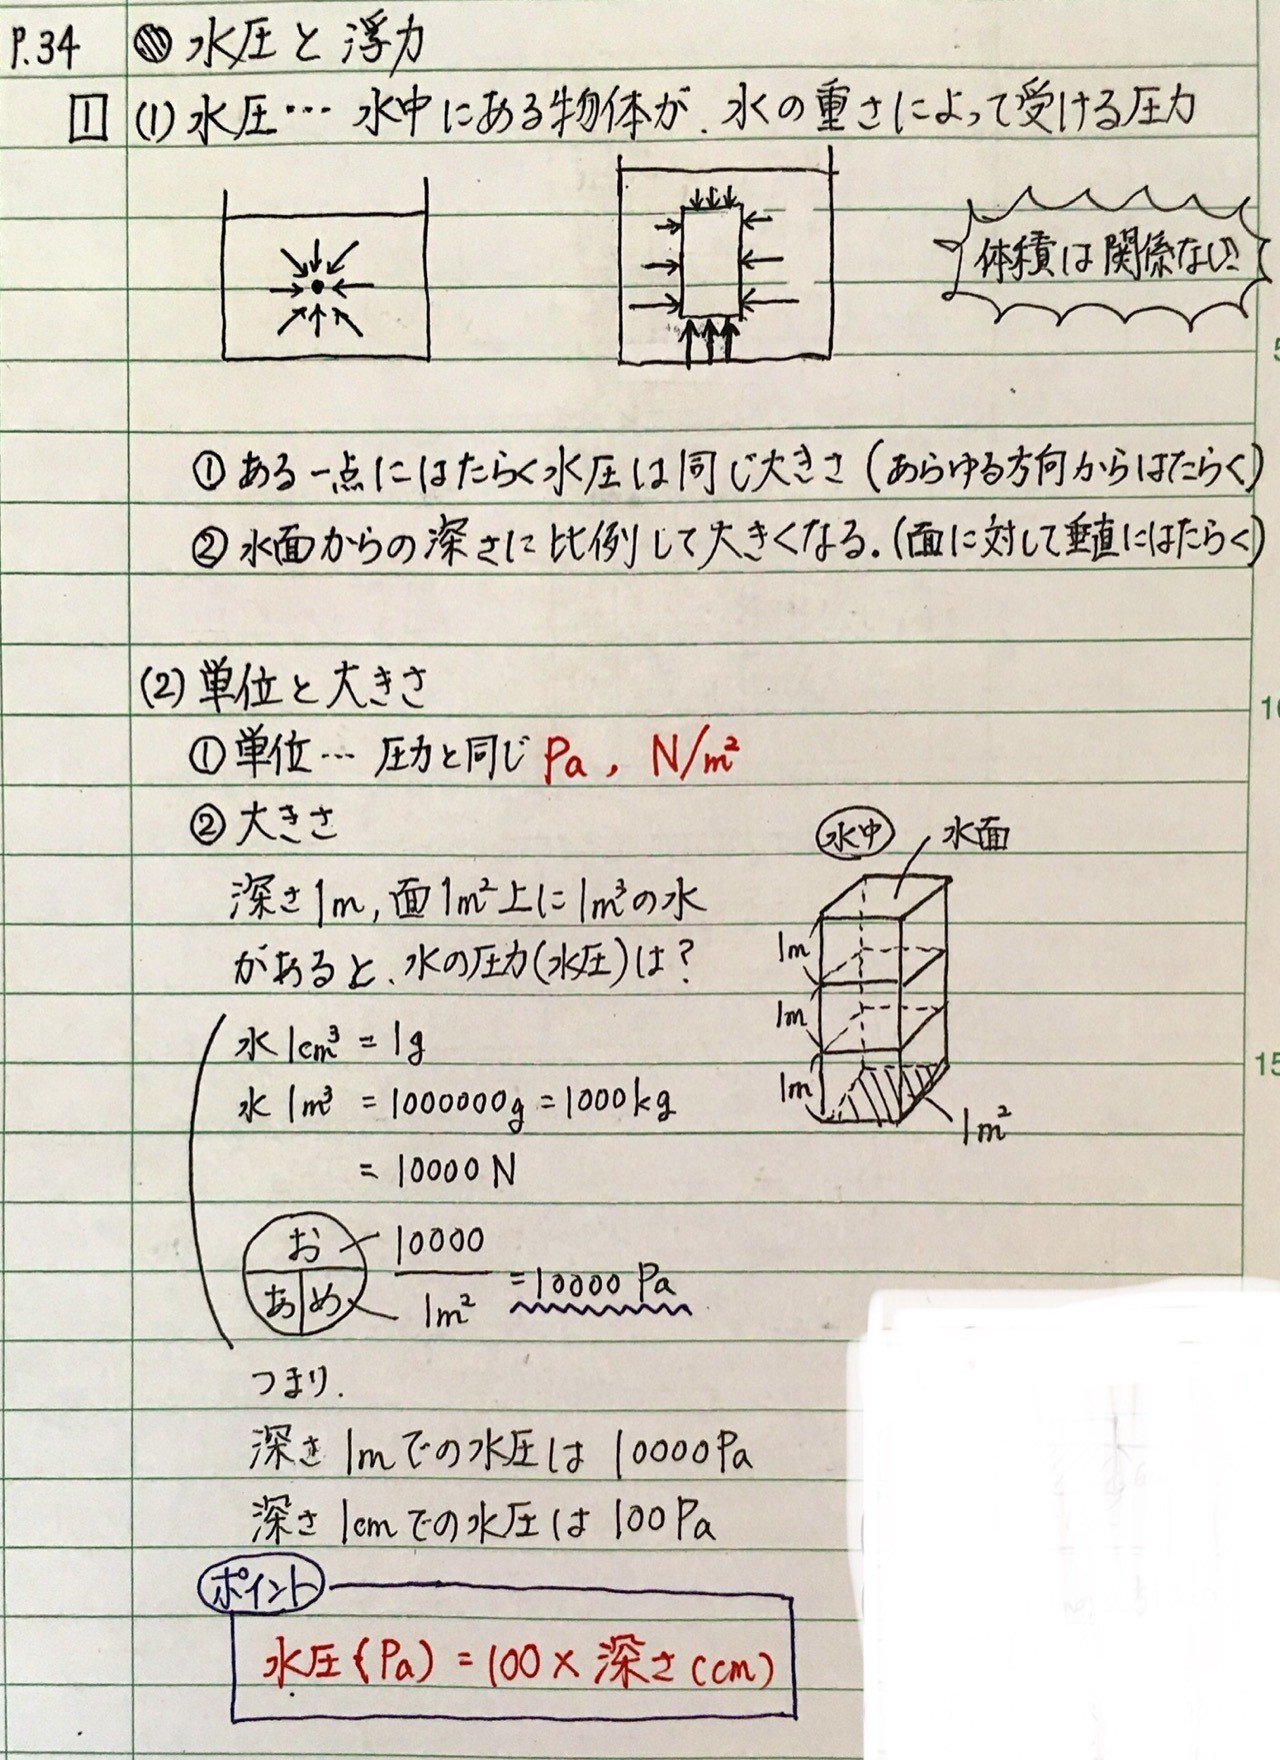 P.34 水圧と浮力
1 (1) 水圧… 水中にある物体が、水の重さによって受ける圧力
体積は関係ない!!
① ある一点にはたらく水圧は同じ大きさ (あらゆる方向からはたらく)
② 水面からの深さに比例して大きくなる。(面に対して垂直にはたらく)
(2) 単位と大きさ
① 単位… 圧力と同じ Pa, N/m²
② 大きさ
水中 水面
深さ1m, 面1m²上に1m³の水
があると、水の圧力(水圧)は?
1m
1m
1m
1m²
水 1cm³ = 1g
水 1m³ = 1000000g = 1000kg
= 10000 N
お 10000
あ め 1m² = 10000 Pa
つまり、
深さ 1mでの水圧は 10000Pa
深さ 1cmでの水圧は 100Pa
ポイント
水圧(Pa) = 100 × 深さ(cm)
5
10
15